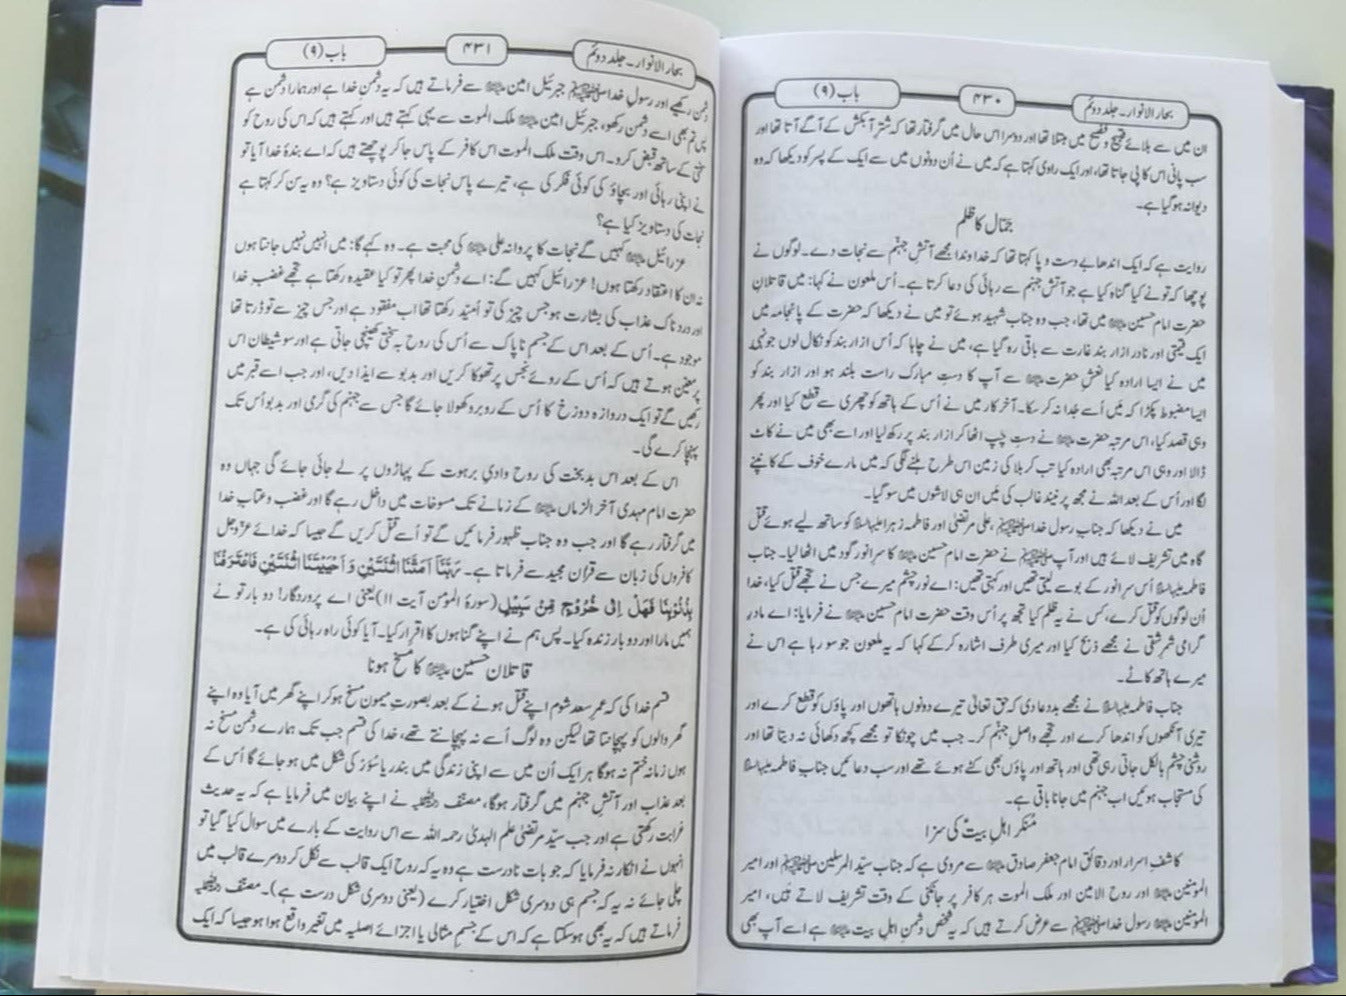 بحار الانوار۔ جلد دوئم
۴۳۰
باب (۹)
ان میں سے بلائے قبیح و فضیح میں مبتلا تھا اور دوسرا اس حال میں گرفتار تھا کہ شتر آبکش کے آگے آتا تھا اور
سب پانی اس کا پی جاتا تھا، اور ایک راوی کہتا ہے کہ میں نے اُن دونوں میں سے ایک کے پسر کو دیکھا کہ وہ
دیوانہ ہو گیا ہے۔
جمّال کا ظلم
روایت ہے کہ ایک اندھا بے دست و پا کہتا تھا کہ خداوندا مجھے آتش جہنّم سے نجات دے۔ لوگوں نے
پوچھا کہ تو نے کیا گناہ کیا ہے جو آتش جہنم سے رہائی کی دعا کرتا ہے۔ اُس ملعون نے کہا: میں قاتلانِ
حضرت امام حسین علیہ السلام میں تھا، جب وہ جناب شہید ہوئے تو میں نے دیکھا کہ حضرت کے پائجامہ میں
ایک قیمتی اور نادر ازار بند غارت سے باقی رہ گیا ہے، میں نے چاہا کہ اُس ازار بند کو نکال لوں جونہی
میں نے ایسا ارادہ کیا نعش حضرت علیہ السلام سے آپ کا دستِ مبارک راست بلند ہوا اور ازار بند کو
ایسا مضبوط پکڑا کہ میں اُسے جدا نہ کر سکا۔ آخر کار میں نے اُس کے ہاتھ کو چھری سے قطع کیا اور پھر
وہی قصد کیا، اس مرتبہ حضرت علیہ السلام نے دستِ چپ اٹھا کر ازار بند پر رکھ لیا اور اسے بھی میں نے کاٹ
ڈالا اور وہی اس مرتبہ بھی ارادہ کیا تب کربلا کی زمین اس طرح ہلنے لگی کہ میں مارے خوف کے کانپنے
لگا اور اُس کے بعد اللہ نے مجھ پر نیند غالب کی میں ان ہی لاشوں میں سو گیا۔
میں نے دیکھا کہ جناب رسول خدا صلی اللہ علیہ وآلہ وسلم، علی مرتضیٰ اور فاطمہ زہرا علیہا السلام کو ساتھ لیے ہوئے قتل
گاہ میں تشریف لائے ہیں اور آپ صلی اللہ علیہ وآلہ وسلم نے حضرت امام حسین علیہ السلام کا سرِ انور گود میں اٹھا لیا۔ جناب
فاطمہ علیہا السلام اُس سرِ انور کے بوسے لیتی تھیں اور کہتی تھیں: اے نورِ چشم میرے جس نے تجھے قتل کیا، خدا
اُن لوگوں کو قتل کرے، کس نے یہ ظلم کیا تجھ پر اُس وقت حضرت امام حسین علیہ السلام نے فرمایا: اے مادرِ
گرامی شمر شقی نے مجھے ذبح کیا اور میری طرف اشارہ کر کے کہا کہ یہ ملعون جو سو رہا ہے اس نے
میرے ہاتھ کاٹے۔
جناب فاطمہ علیہا السلام نے مجھے بددعا دی کہ حق تعالیٰ تیرے دونوں ہاتھوں اور پاؤں کو قطع کرے اور
تیری آنکھوں کو اندھا کرے اور تجھے واصلِ جہنّم کر۔ جب میں چونکا تو مجھے کچھ دکھائی نہ دیتا تھا اور
روشنی چشم بالکل جاتی رہی تھی اور ہاتھ اور پاؤں بھی کٹے ہوئے تھے اور سب دعائیں جنابِ فاطمہ علیہا السلام
کی مستجاب ہوئیں اب جہنم میں جانا باقی ہے۔
مُنکر اہلِ بیتؑ کی سزا
کاشفِ اسرار اور دقائق امام جعفر صادق علیہ السلام سے مروی ہے کہ جناب سیّد المرسلین صلی اللہ علیہ وآلہ وسلم اور امیر
المؤمنین علیہ السلام اور روح الامین اور ملک الموت ہر کافر پر جانکنی کے وقت تشریف لاتے ہیں، امیر
المومنین علیہ السلام رسول خدا صلی اللہ علیہ وآلہ وسلم سے عرض کرتے ہیں کہ یہ شخص دشمنِ اہلِ بیت علیہ السلام ہے اسے آپ بھی
بحار الانوار۔ جلد دوئم
۴۳۱
باب (۹)
دشمن رکھیے اور رسولِ خدا صلی اللہ علیہ وآلہ وسلم جبرئیل امین علیہ السلام سے فرماتے ہیں کہ یہ دشمنِ خدا ہے اور ہمارا دشمن ہے
پس تم بھی اسے دشمن رکھو، جبرئیل امین علیہ السلام ملک الموت سے یہی کہتے ہیں اور کہتے ہیں کہ اس کی روح کو
سختی کے ساتھ قبض کرو۔ اس وقت ملک الموت اس کافر کے پاس جا کر پوچھتے ہیں کہ اے بندۂ خدا آیا تو
نے اپنی رہائی اور بچاؤ کی کوئی فکر کی ہے، تیرے پاس نجات کی کوئی دستاویز ہے؟ وہ یہ سن کر کہتا ہے
نجات کی دستاویز کیا ہے؟
عزرائیل علیہ السلام کہیں گے نجات کا پروانہ علی علیہ السلام کی محبت ہے۔ وہ کہے گا: میں انہیں نہیں جانتا ہوں
نہ ان کا اعتقاد رکھتا ہوں! عزرائیل کہیں گے: اے دشمنِ خدا پھر تو کیا عقیدہ رکھتا ہے تجھے غضبِ خدا
اور دردناک عذاب کی بشارت ہو جس چیز کی تو اُمیّد رکھتا تھا اب مفقود ہے اور جس چیز سے تو ڈرتا تھا
موجود ہے۔ اُس کے بعد اس کے جسمِ ناپاک سے اُس کی روح بہ سختی کھینچی جاتی ہے اور سو شیطان اس
پر معیّن ہوتے ہیں کہ اُس کے روئے نجس پر تھوکا کریں اور بدبو سے ایذا دیں، اور جب اسے قبر میں
رکھیں گے تو ایک دروازہ دوزخ کا اُس کے روبرو کھولا جائے گا جس سے جہنم کی گرمی اور بدبو اُس تک
پہنچا کرے گی۔
اس کے بعد اس بدبخت کی روح وادیِ برہوت کے پہاڑوں پر لے جائی جائے گی جہاں وہ
حضرت امام مہدی آخر الزماں علیہ السلام کے زمانے تک مسوخات میں داخل رہے گا اور غضب و عتابِ خدا
میں گرفتار رہے گا اور جب وہ جناب ظہور فرمائیں گے تو اُسے قتل کریں گے جیسا کہ خدائے عزّوجل
کافروں کی زبان سے قرآن مجید سے فرماتا ہے۔ رَبَّنَآ اَمَتَّنَا اثْنَتَیْنِ وَ اَحْیَیْتَنَا اثْنَتَیْنِ فَاعْتَرَفْنَا
بِذُنُوْبِنَا فَهَلْ اِلٰى خُرُوْجٍ مِّنْ سَبِیْلٍ (سورۂ المؤمن آیت ۱۱) یعنی اے پروردگار! دو بار تو نے
ہمیں مارا اور دو بار زندہ کیا۔ پس ہم نے اپنے گناہوں کا اقرار کیا۔ آیا کوئی راہ رہائی کی ہے۔
قاتلان حسین علیہ السلام کا مسخ ہونا
قسم خدا کی کہ عمر سعد شوم اپنے قتل ہونے کے بعد بصورتِ میمون مسخ ہو کر اپنے گھر میں آیا وہ اپنے
گھر والوں کو پہچانتا تھا لیکن وہ لوگ اُسے نہ پہچانتے تھے، خدا کی قسم جب تک ہمارے دشمن مسخ نہ
ہوں زمانہ ختم نہ ہوگا ہر ایک اُن میں سے اپنی زندگی میں بندر یا سُؤر کی شکل میں ہو جائے گا اُس کے
بعد عذاب اور آتش جہنم میں گرفتار ہوگا، مصنف نے اپنے بیان میں فرمایا ہے کہ یہ حدیث
غرابت رکھتی ہے اور جب سیّد مرتضیٰ علم الہدیٰ رحمہ اللہ سے اس روایت کے بارے میں سوال کیا گیا تو
انہوں نے انکار نہ فرمایا کہ جو بات نادرست ہے وہ یہ کہ روح ایک قالب سے نکل کر دوسرے قالب میں
چلی جائے نہ یہ کہ جسم ہی دوسری شکل اختیار کرے (یعنی دوسری شکل درست ہے)۔ مصنف
فرماتے ہیں کہ یہ بھی ہو سکتا ہے کہ اس کے جسمِ مثالی یا اجزائے اصلیہ میں تغیر واقع ہوا ہو جیسا کہ ایک